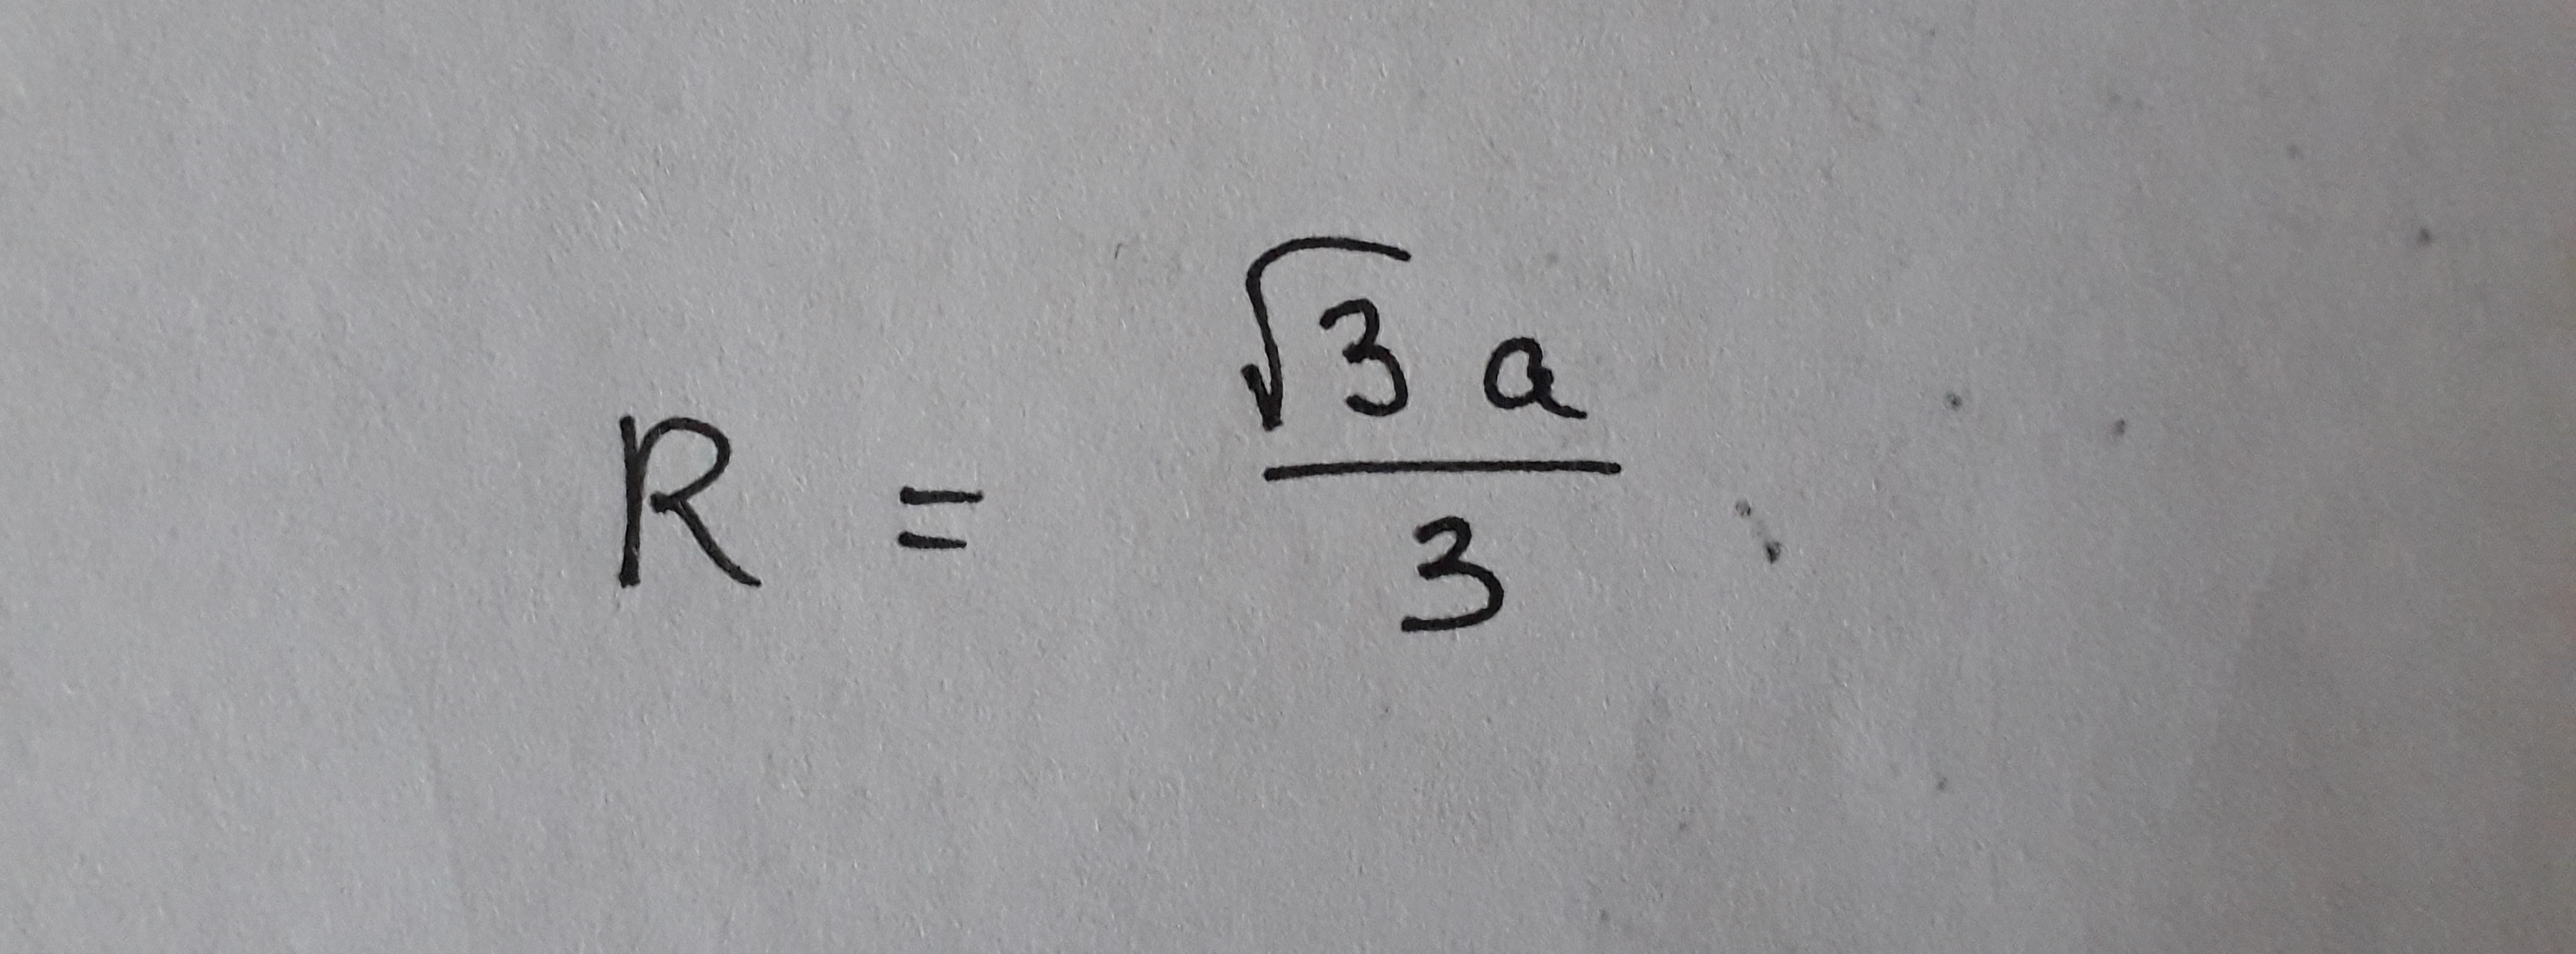 R = √3 a / 3